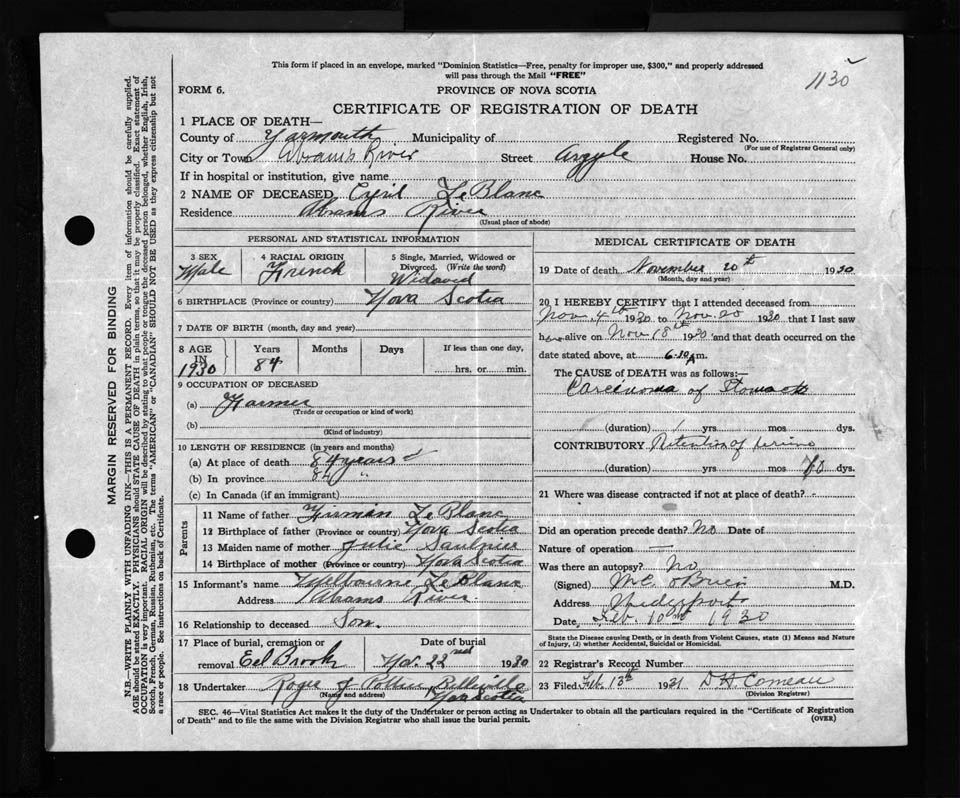 This form if placed in an envelope, marked "Dominion Statistics—Free, penalty for improper use, $300," and properly addressed
will pass through the Mail "FREE"
1130
FORM 6.
PROVINCE OF NOVA SCOTIA
CERTIFICATE OF REGISTRATION OF DEATH
1 PLACE OF DEATH—
County of Yarmouth Municipality of Registered No.
(For use of Registrar General only)
City or Town Abrams River Street Argyle House No.
If in hospital or institution, give name
2 NAME OF DECEASED Cyril LeBlanc
Residence Abrams River
(Usual place of abode)
PERSONAL AND STATISTICAL INFORMATION
3 SEX 4 RACIAL ORIGIN 5 Single, Married, Widowed or
Divorced. (Write the word)
Male French Widowed
6 BIRTHPLACE (Province or country) Nova Scotia
7 DATE OF BIRTH (month, day and year)
8 AGE IN Years Months Days If less than one day,
1930 84 hrs. or min.
9 OCCUPATION OF DECEASED
(a) Farmer
(Trade or occupation or kind of work)
(b)
(Kind of industry)
10 LENGTH OF RESIDENCE (in years and months)
(a) At place of death 84 years
(b) In province 84 "
(c) In Canada (if an immigrant)
Parents
11 Name of father Firman LeBlanc
12 Birthplace of father (Province or country) Nova Scotia
13 Maiden name of mother Julie Saulnier
14 Birthplace of mother (Province or country) Nova Scotia
15 Informant's name Melbourne LeBlanc
Address Abrams River
16 Relationship to deceased Son.
17 Place of burial, cremation or Date of burial
removal Eel Brook Nov. 22nd 1930
18 Undertaker Roger J Pottier Belleville
(Name and address) Nova Scotia
MEDICAL CERTIFICATE OF DEATH
19 Date of death November 20th 1930
(Month, day and year)
20 I HEREBY CERTIFY that I attended deceased from
Nov. 4th 1930 to Nov. 20 1930 that I last saw
him alive on Nov 18th 1930 and that death occurred on the
date stated above, at 6.30 A m.
The CAUSE of DEATH was as follows:—
Carcinoma of Stomach
(duration) 1 yrs mos dys.
CONTRIBUTORY Retention of urine
(duration) yrs mos dys.
21 Where was disease contracted if not at place of death?
Did an operation precede death? No Date of
Nature of operation —
Was there an autopsy? No
(Signed) M.C. O'Brien M.D.
Address
Date Feb. 10th 1930
State the Disease causing Death, or in death from Violent Causes, state (1) Means and Nature
of Injury, (2) whether Accidental, Suicidal or Homicidal.
22 Registrar's Record Number
23 Filed Feb. 13th 1931 D H Comeau
(Division Registrar)
SEC. 46—Vital Statistics Act makes it the duty of the Undertaker or person acting as Undertaker to obtain all the particulars required in the "Certificate of Registration
of Death" and to file the same with the Division Registrar who shall issue the burial permit.
(OVER)
MARGIN RESERVED FOR BINDING
N.B.—WRITE PLAINLY WITH UNFADING INK—THIS IS A PERMANENT RECORD. Every item of information should be carefully supplied.
AGE should be stated EXACTLY. PHYSICIANS should STATE CAUSE OF DEATH in plain terms, so that it may be properly classified. Exact statement of
OCCUPATION is very important. RACIAL ORIGIN will be described by stating to what people or tongue the deceased person belonged, whether English, Irish,
Scotch, French, German, Russian, Ruthenian, etc. The terms "AMERICAN" or "CANADIAN" SHOULD NOT BE USED as they express citizenship but not
a race or people. See instructions on back of Certificate.